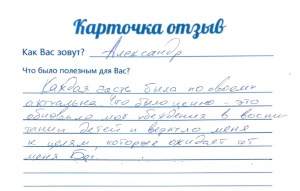 Карточка отзыв
Как Вас зовут? Александр
Что было полезным для Вас?
Каждая часть была по своему
актуальна. Что было ценно - это
обновило мое убеждения в воспи
тании детей и вернуло меня
к целям, которые ожидает от
меня Бог.